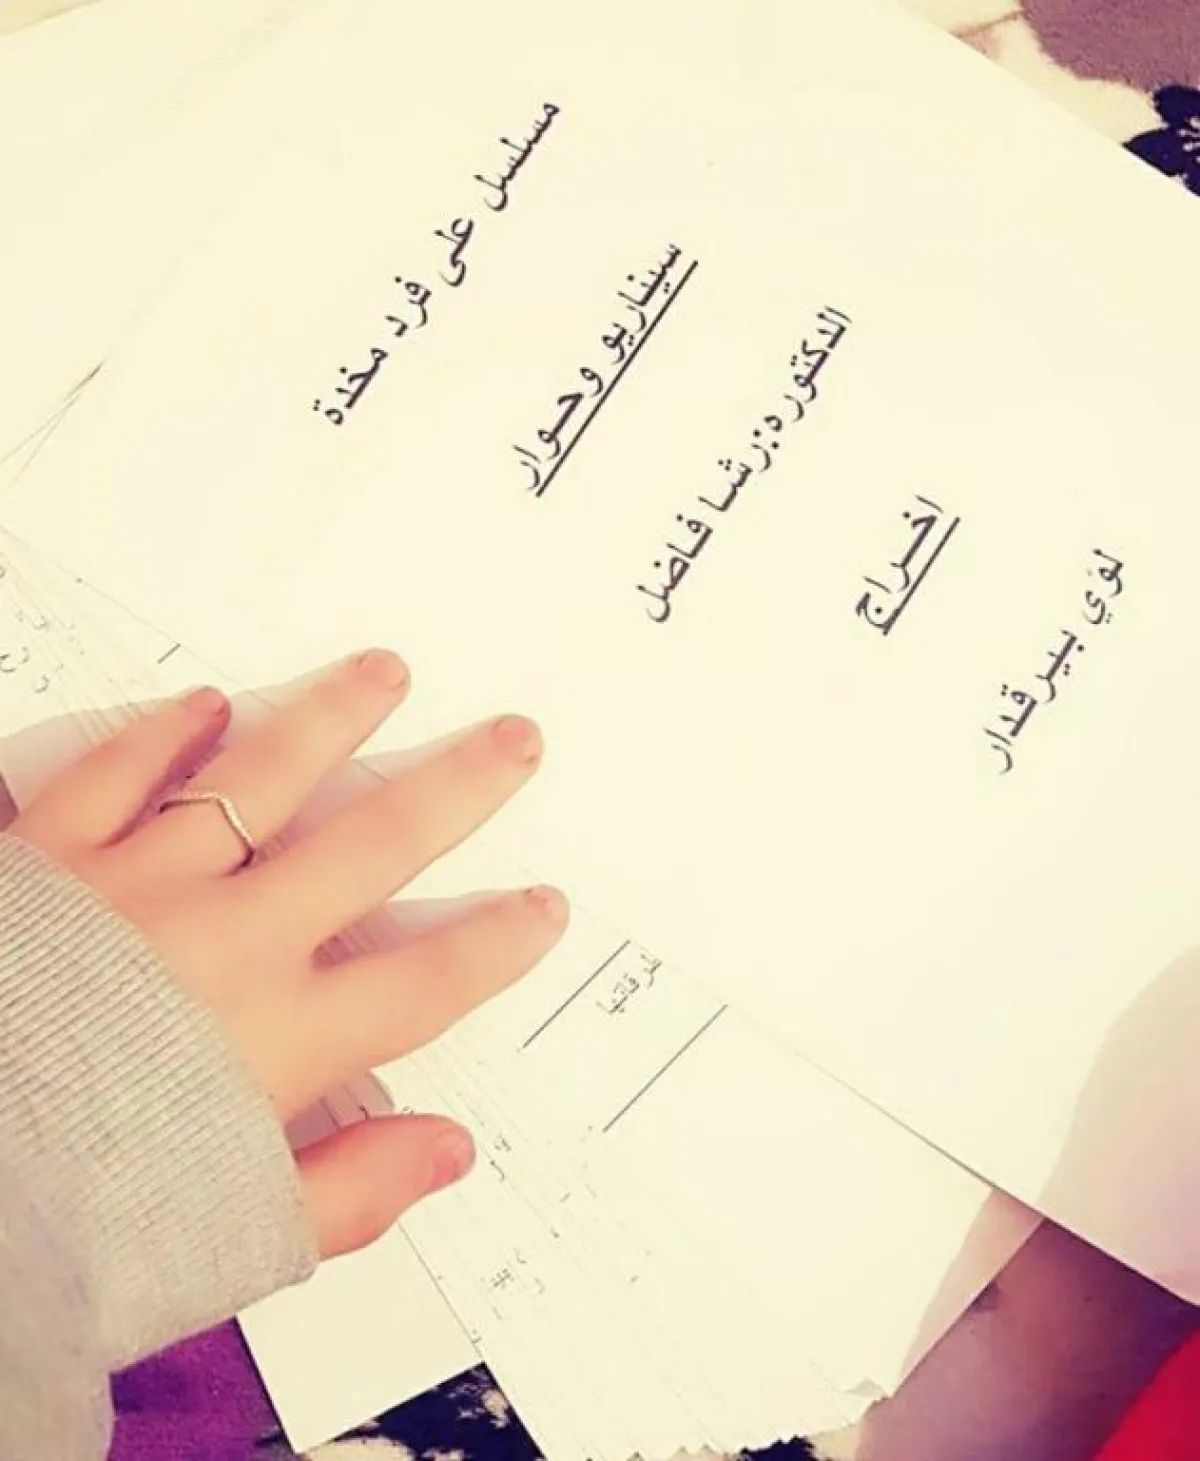 مسلسل على فرد مخدة
سيناريو وحوار
الدكتوره:رشا فاضل
اخراج
لؤي بيرقدار